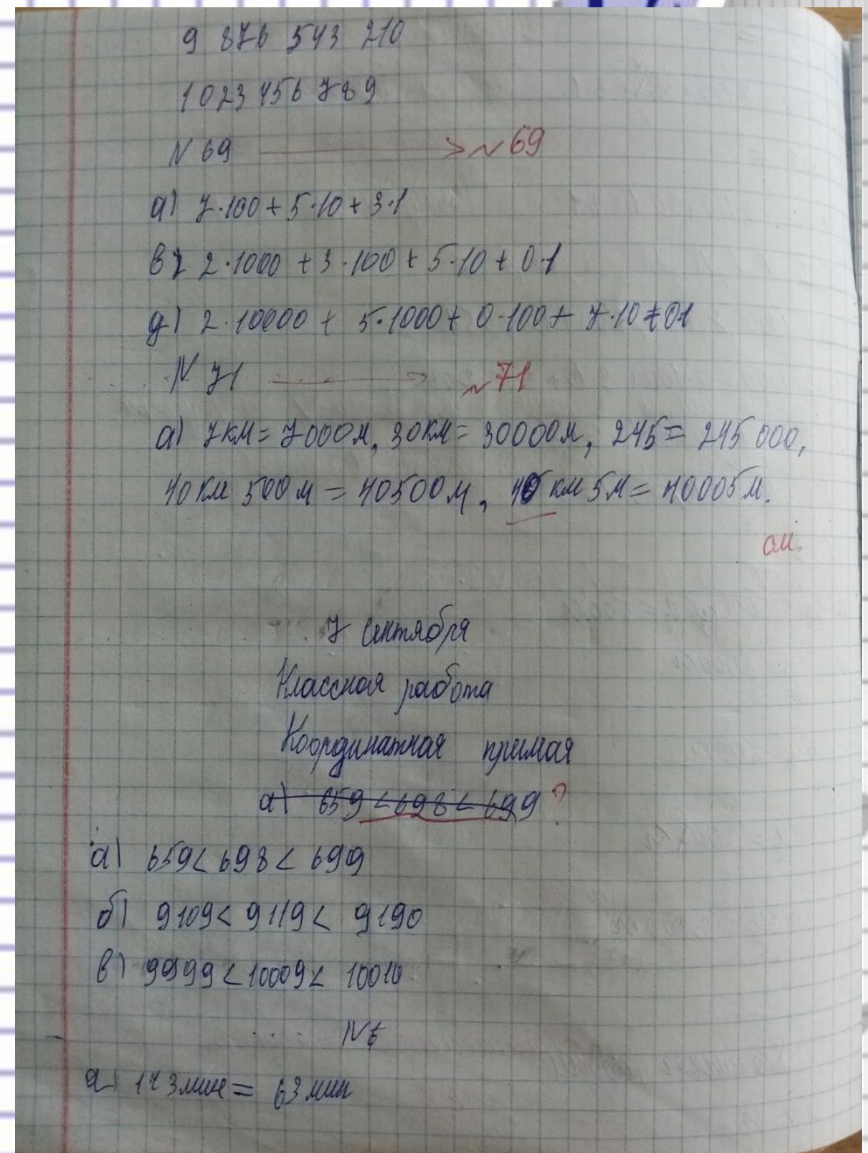 9 876 543 210
1023456789
N 69 → N69
а) 7·100+5·10+3·1
в) 2·1000+3·100+5·10+0·1
д) 2·10000+5·1000+0·100+7·10+0·1
N 71 → N71
а) 7км=7000м, 30км=30000м, 245=245 000,
40км 500м=40500м, 40 км 5м=40005м.
см.
7 сентября
Классная работа
Координатная прямая
а) 659<698<699 ?
а) 659<698<699
б) 9109<9119<9190
в) 9999<10009<10010
а) 1ч3мин=63мин